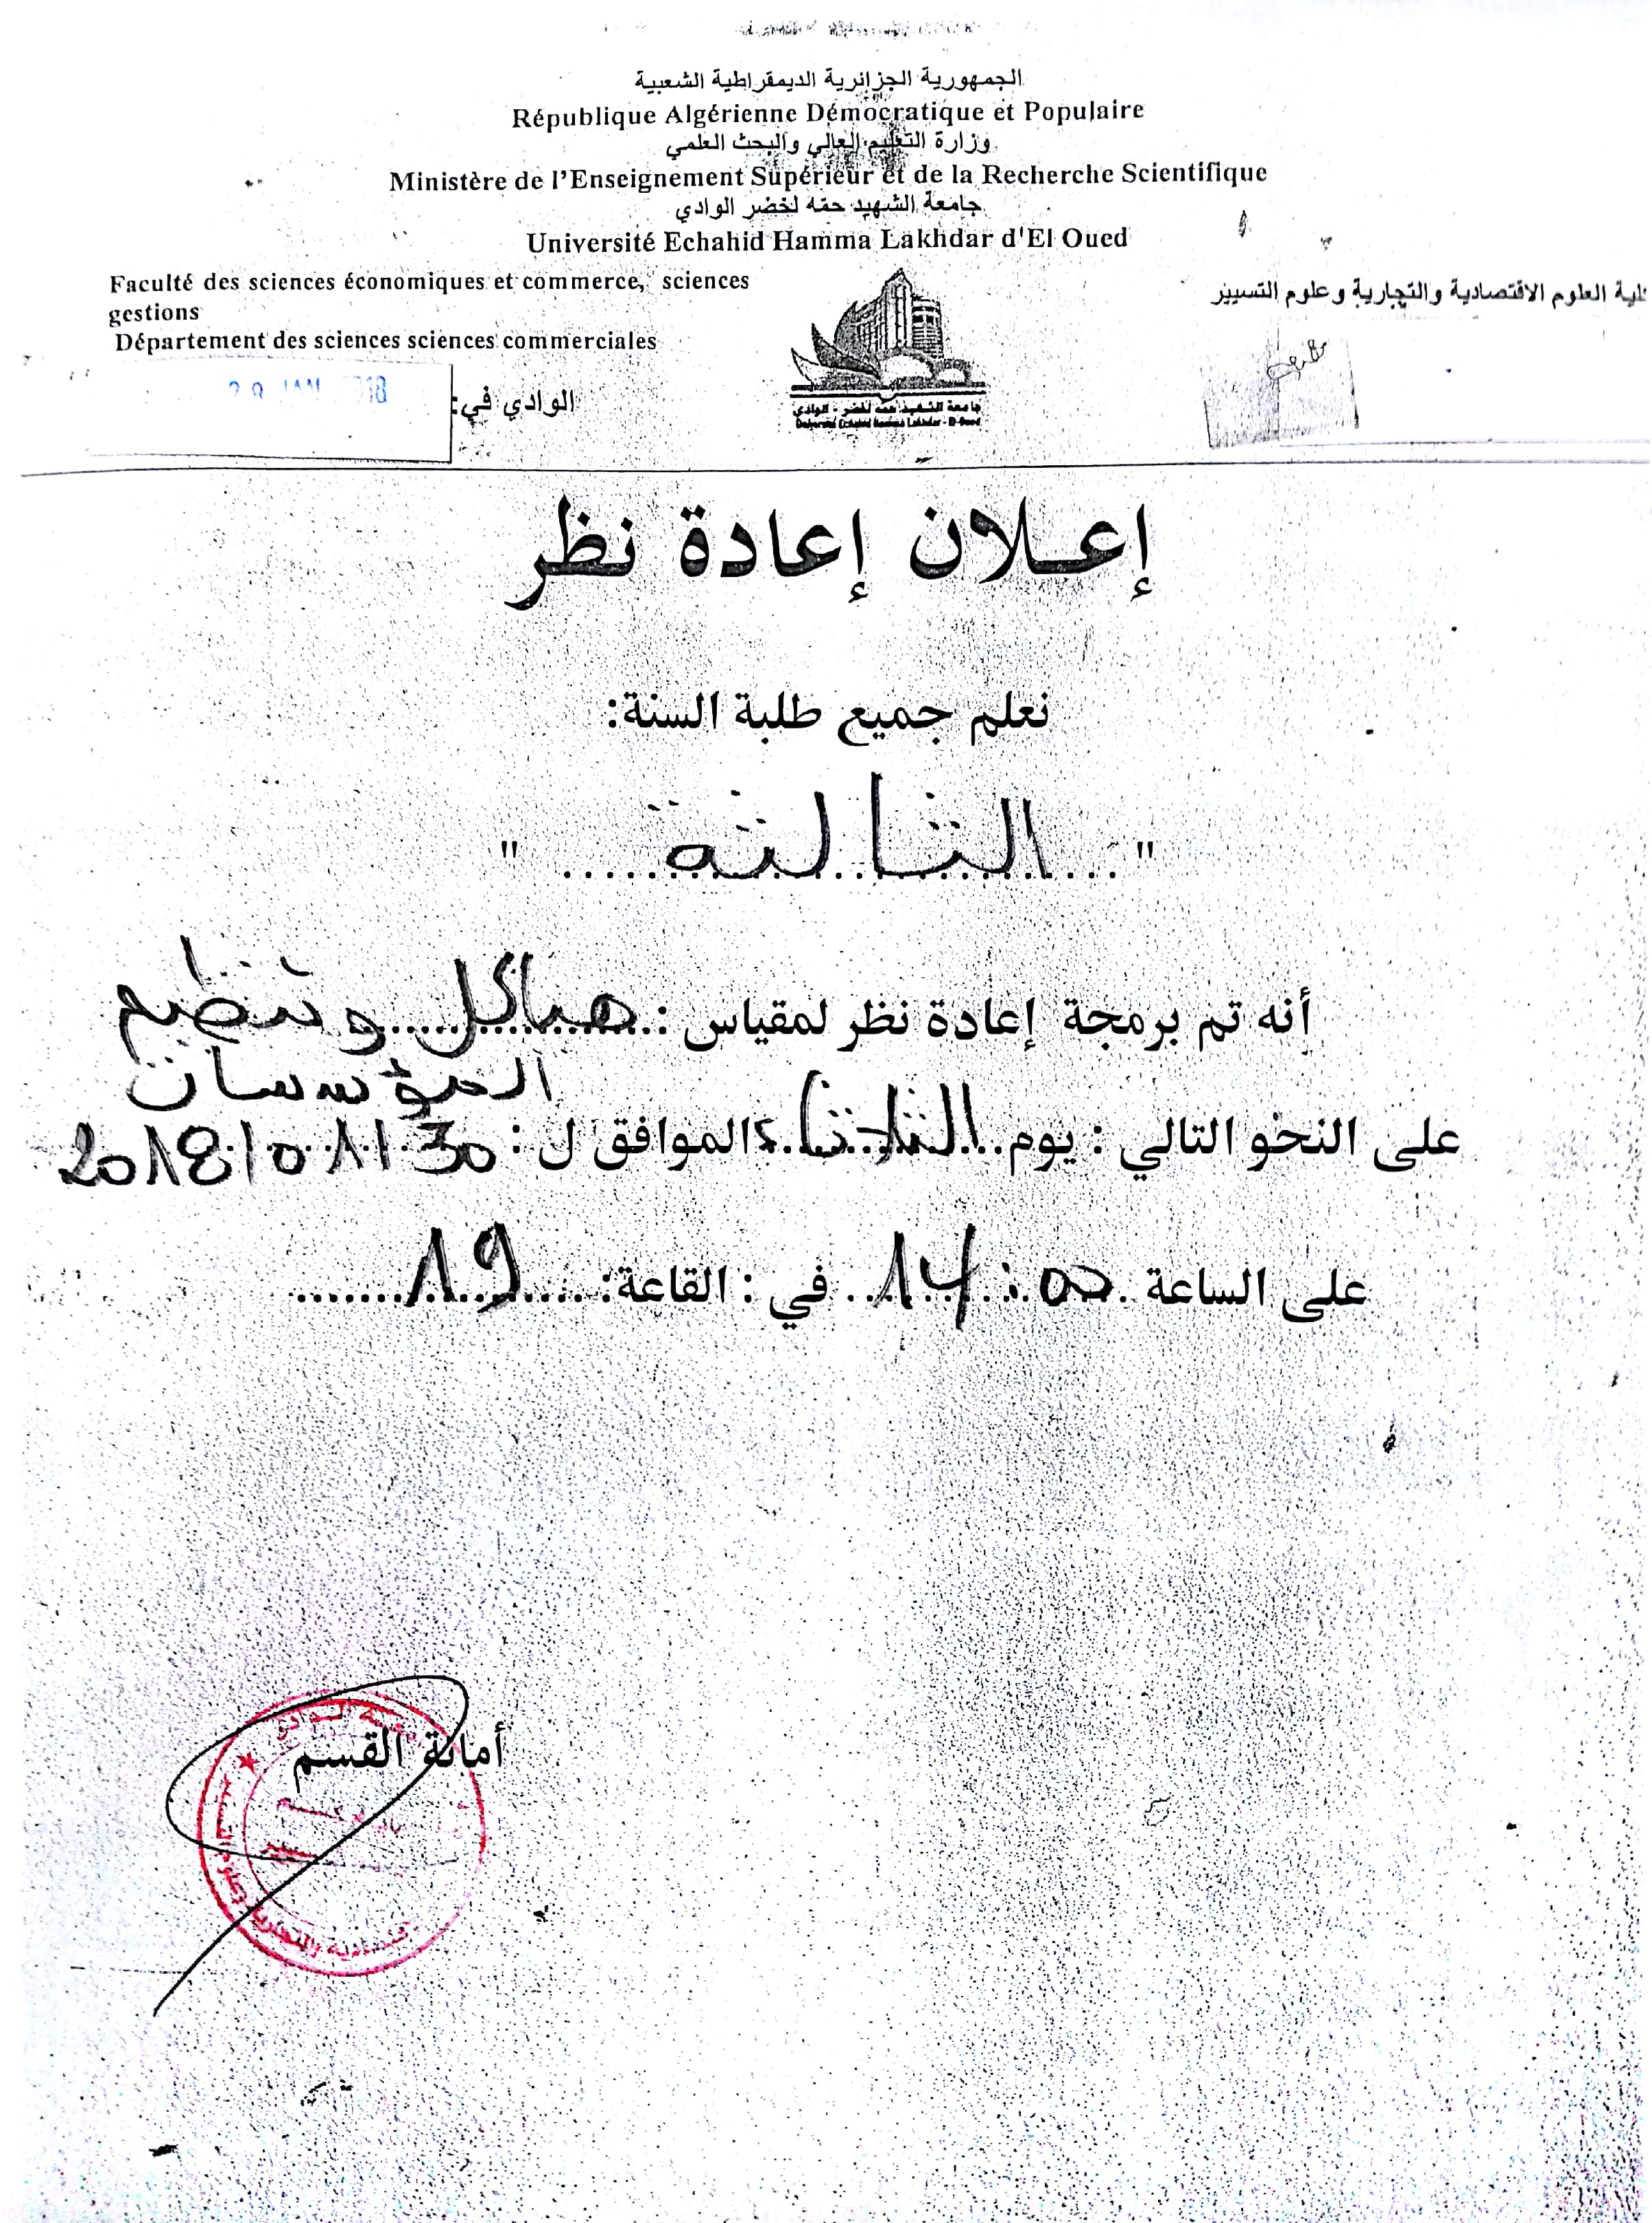 الجمهورية الجزائرية الديمقراطية الشعبية
République Algérienne Démocratique et Populaire
وزارة التعليم العالي والبحث العلمي
Ministère de l'Enseignement Supérieur et de la Recherche Scientifique
جامعة الشهيد حمّه لخضر الوادي
Université Echahid Hamma Lakhdar d'El Oued
Faculté des sciences économiques et commerce, sciences
gestions
Département des sciences sciences commerciales
العلوم الاقتصادية والتجارية وعلوم التسيير
جامعة الشهيد حمه لخضر - الوادي
Université Echahid Hamma Lakhdar - El-Oued
الوادي في:
إعـلان إعادة نظر
نعلم جميع طلبة السنة:
"... الثالثة ..."
أنه تم برمجة إعادة نظر لمقياس : هياكل وتنظيم
المؤسسات
على النحو التالي : يوم الثلاثاء الموافق ل : 2018/01/30
على الساعة 14:00 في : القاعة: 19
أمانة القسم